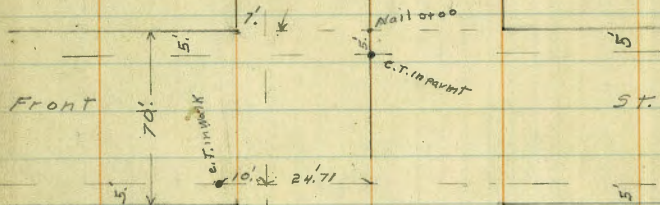 7'.
Nail 0+00
5'.
5'.
5'
C.T. in pavmt
Front
70'.
C.T. in walk
St.
10'.
24'.71
5'.
5'